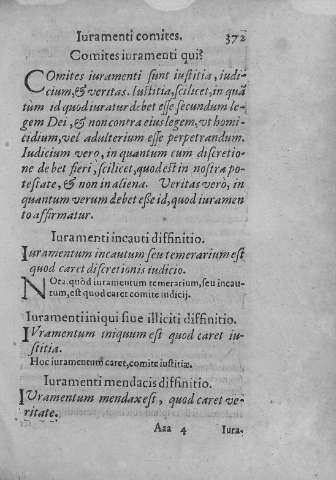 Iuramenti comites. 372
Comites iuramenti qui?
Comites iuramenti sunt iustitia, iudi-
cium, & veritas. Iustitia, scilicet, in quã
tùm id quod iuratur debet esse secundum le-
gem Dei, & non contra eius legem, vt homi-
cidium, vel adulterium esse perpetrandum.
Iudicium verò, in quantum cum discretio-
ne debet fieri, scilicet, quod est in nostra po-
testate, & non in aliena. Veritas verò, in
quantum verum debet esse id, quod iuramen
to affirmatur.
Iuramenti incauti diffinitio.
Iuramentum incautum seu temerarium est
quod caret discretionis iudicio.
NOta. quòd iuramentum temerarium, seu incau-
tum, est quod caret comite iudicij.
Iuramenti iniqui siue illiciti diffinitio.
IVramentum iniquum est quod caret iu-
stitia.
Hoc iuramentum caret, comite iustitiæ.
Iuramenti mendacis diffinitio.
IVramentum mendax est, quod caret ve-
ritate.
Aaa 4 Iura-